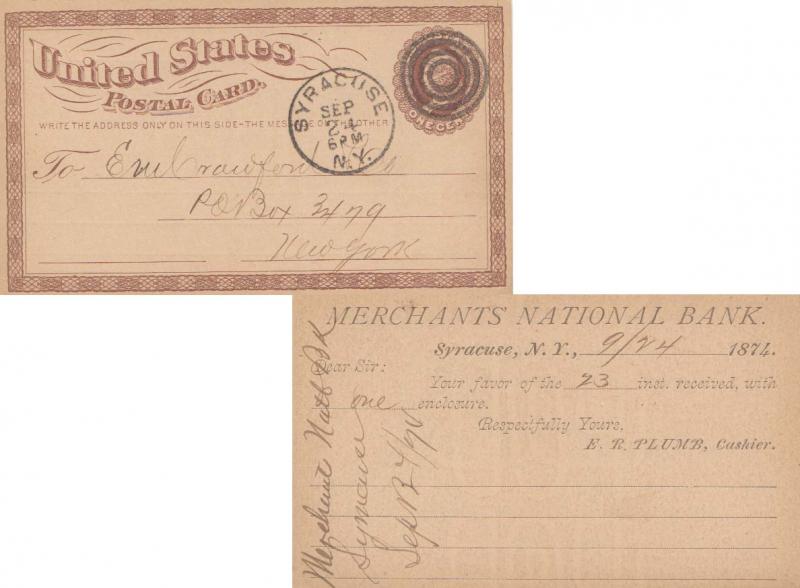 United States
POSTAL CARD.
WRITE THE ADDRESS ONLY ON THIS SIDE-THE MESSAGE ON THE OTHER
SYRACUSE
SEP
24
6 PM
N.Y.
ONE CENT
To Crawford
P.O Box 3479
New York
MERCHANTS' NATIONAL BANK.
Syracuse, N. Y., 9/24 1874.
Dear Sir:
Your favor of the 23 inst. received, with
one enclosure.
Respectfully Yours,
E. R. PLUMB, Cashier.
Merchant Natl Bk
Syracuse
Sep